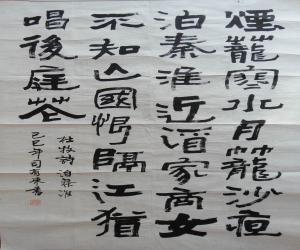 煙籠寒水月籠沙夜
泊秦淮近酒家商女
不知亡國恨隔江猶
唱後庭花
杜牧詩 泊秦淮
己巳年司
書